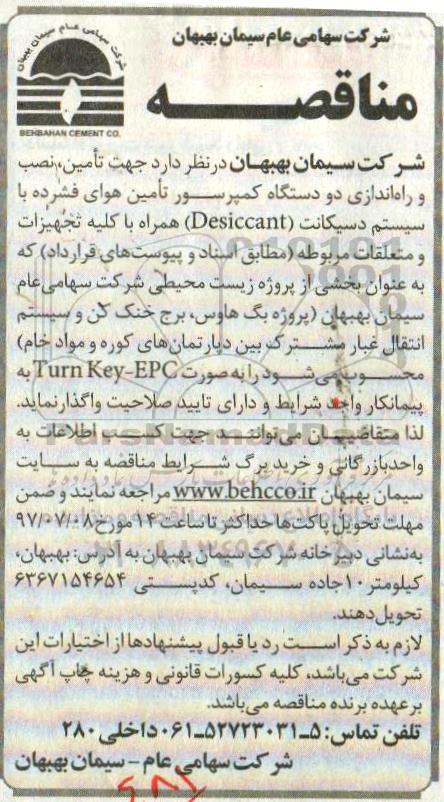 شرکت سهامی عام سیمان بهبهان
شرکت سهامی عام سیمان بهبهان
BEHBAHAN CEMENT CO.
مناقصه
شرکت سیمان بهبهان در نظر دارد جهت تأمین، نصب
و راه‌اندازی دو دستگاه کمپرسور تأمین هوای فشرده با
سیستم دسیکانت (Desiccant) همراه با کلیه تجهیزات
و متعلقات مربوطه (مطابق اسناد و پیوست‌های قرارداد) که
به عنوان بخشی از پروژه زیست محیطی شرکت سهامی عام
سیمان بهبهان (پروژه بگ هاوس، برج خنک کن و سیستم
انتقال غبار مشترک بین دپارتمان‌های کوره و مواد خام)
محسوب می‌شود را به صورت Turn Key-EPC به
پیمانکار واجد شرایط و دارای تایید صلاحیت واگذار نماید.
لذا متقاضیان می‌توانند جهت کسب اطلاعات به
واحد بازرگانی و خرید برگ شرایط مناقصه به سایت
سیمان بهبهان www.behcco.ir مراجعه نمایند و ضمن
مهلت تحویل پاکت‌ها حداکثر تا ساعت ۱۴ مورخ ۹۷/۰۷/۰۸
به نشانی دبیرخانه شرکت سیمان بهبهان به آدرس: بهبهان،
کیلومتر ۱۰ جاده سیمان، کدپستی ۶۳۶۷۱۵۴۶۵۴
تحویل دهند.
لازم به ذکر است رد یا قبول پیشنهادها از اختیارات این
شرکت می‌باشد، کلیه کسورات قانونی و هزینه چاپ آگهی
بر عهده برنده مناقصه می‌باشد.
تلفن تماس: ۵-۵۲۷۲۳۰۳۱-۰۶۱ داخلی ۲۸۰
شرکت سهامی عام - سیمان بهبهان